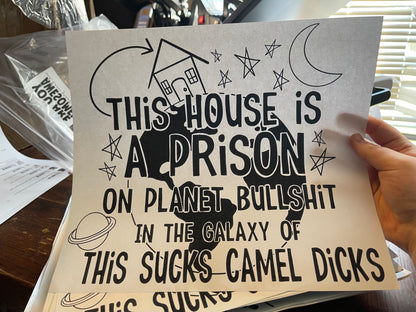 THIS HOUSE IS
A PRISON
ON PLANET BULLSHIT
IN THE GALAXY OF
THIS SUCKS CAMEL DICKS
THIS SUCKS
YOU